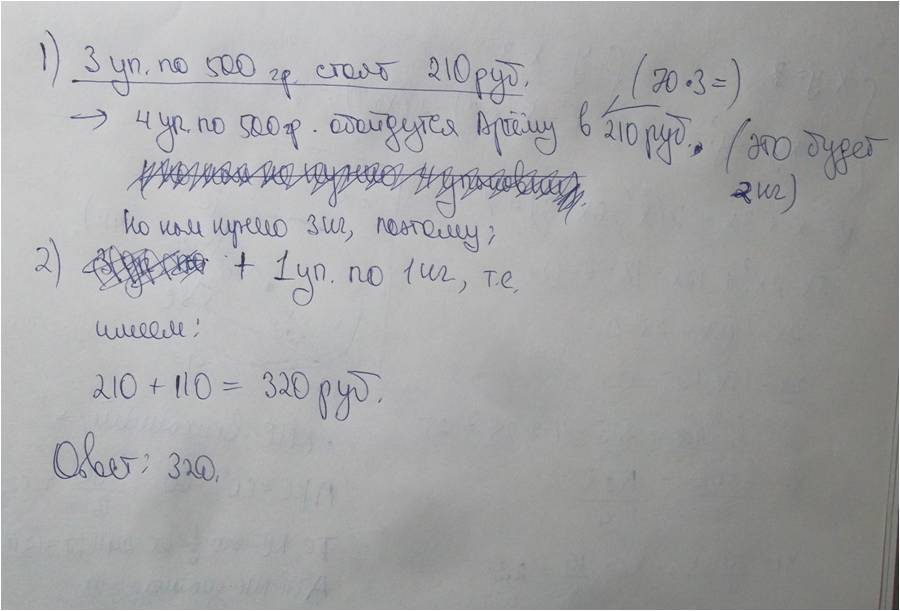 1) 3 уп. по 500 гр. стоят 210 руб.
(70·3=)
→ 4 уп. по 500 гр. обойдутся Артёму в 210 руб. (это будет
2 кг)
Но нам нужно 3 кг, поэтому;
2) + 1 уп. по 1 кг, т.е.
имеем:
210 + 110 = 320 руб.
Ответ: 320.